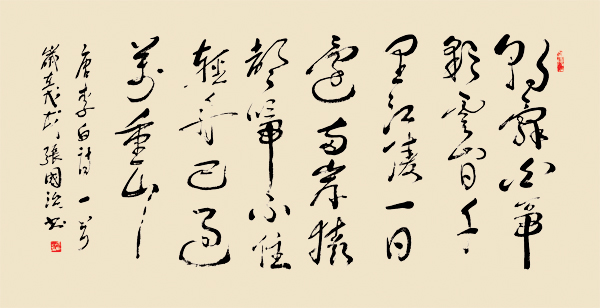 朝辭白帝
彩雲間千
里江陵一日
還兩岸猿
聲啼不住
輕舟已過
萬重山
唐李白詩一首
歲 張國 書